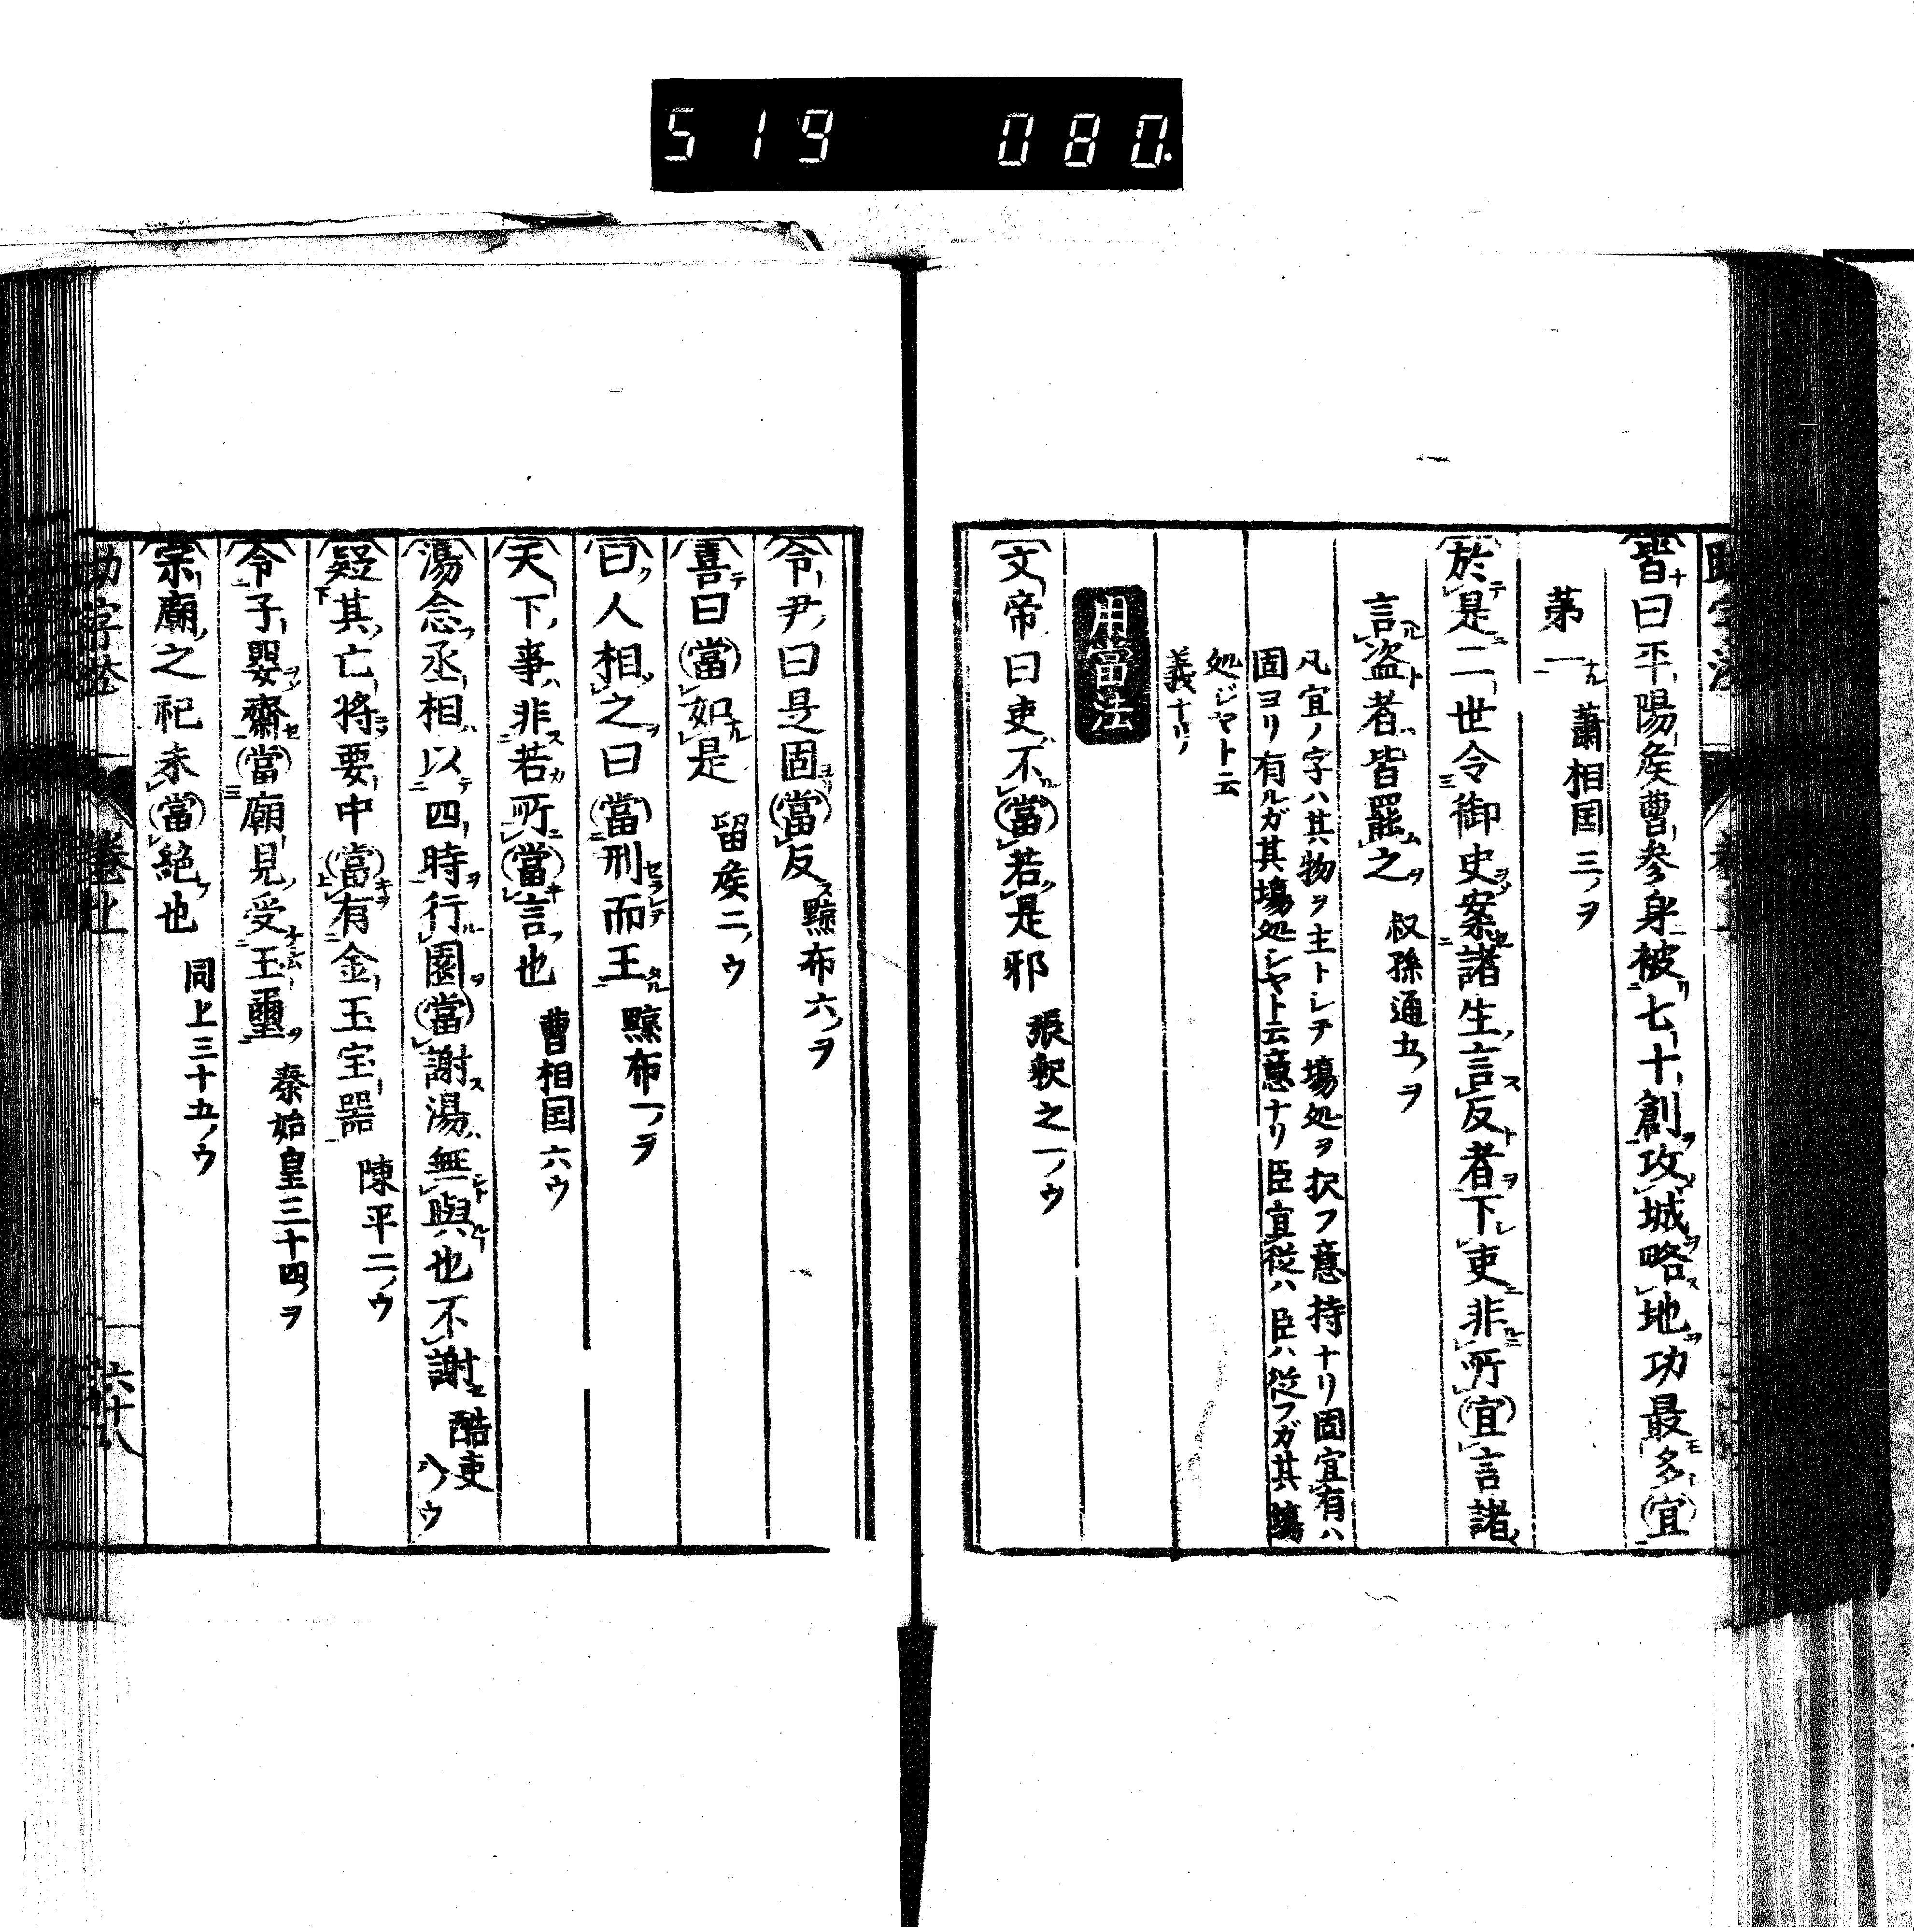 519 080.
皆曰平陽矦曹参身被七十創攻城略地功最多宜
第一 蕭相国三ノヲ
於是二世令御史案諸生言反者下吏非所宜言諸
言盗者皆罷之 叔孫通五ノヲ
凡宜ノ字ハ其物ヲ主トレテ塲処ヲ択フ意持ナリ固宜有ハ
固ヨリ有ルガ其塲処シヤト云意ナリ臣宜従ハ臣ハ従フガ其塲
処ジヤト云
義ナリ
用當法
文帝曰吏不當若是邪 張釈之一ノウ
令尹曰是固當反 黥布六ノヲ
喜曰當如是 留矦二ノウ
曰人相之曰當刑而王 黥布一ノヲ
天下事非若所當言也 曹相国六ウ
湯念丞相以四時行園當謝湯無與也不謝 酷吏八ノウ
疑其亡將要中當有金玉宝器 陳平二ノウ
令子嬰齋當廟見受王璽 秦始皇三十四ノヲ
宗廟之祀未當絶也 同上三十五ノウ
六十八